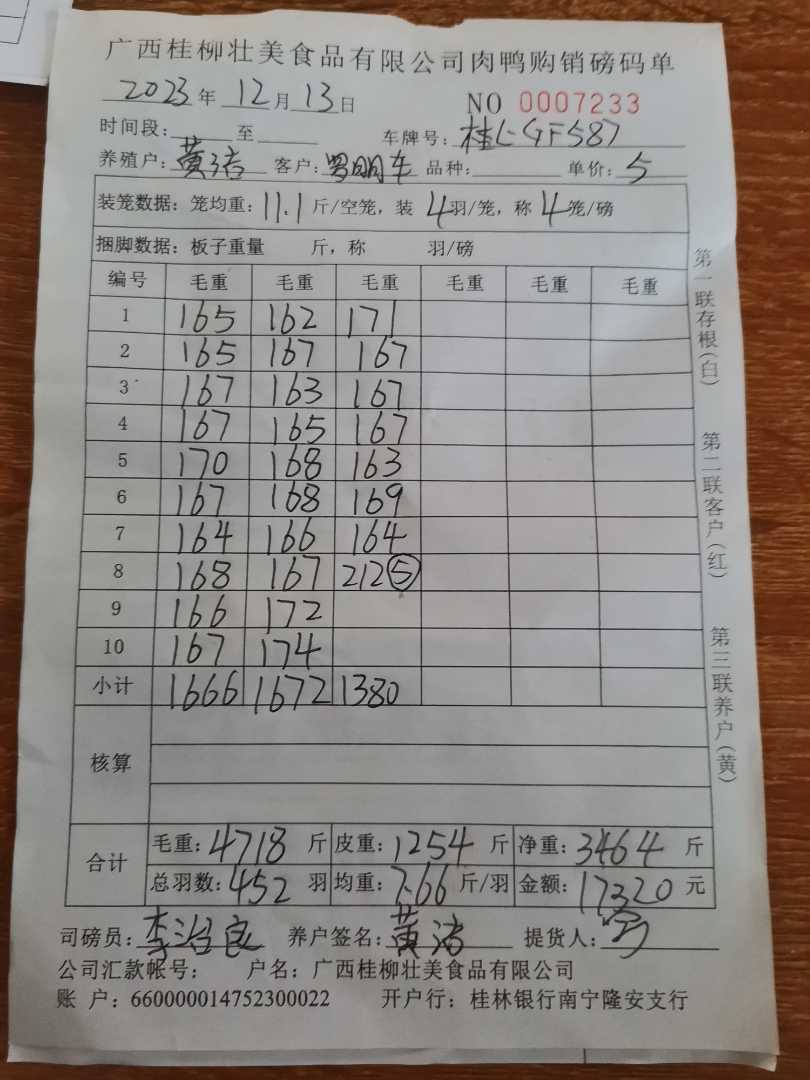 广西桂柳壮美食品有限公司肉鸭购销磅码单
2023年 12月 13日 NO 0007233
时间段: 至 车牌号: 桂L-GF587
养殖户: 黄洁 客户: 罗明车 品种: 单价: 5
装笼数据: 笼均重: 11.1 斤/空笼, 装 4羽/笼, 称 4笼/磅
捆脚数据: 板子重量 斤, 称 羽/磅
编号 毛重 毛重 毛重 毛重 毛重 毛重
1 165 162 171
2 165 167 167
3 167 163 167
4 167 165 167
5 170 168 163
6 167 168 169
7 164 166 164
8 168 167 212⑤
9 166 172
10 167 174
小计 1666 1672 1380
核算
合计 毛重: 4718 斤 皮重: 1254 斤 净重: 3464 斤
总羽数: 452 羽 均重: 7.66 斤/羽 金额: 17320 元
司磅员: 李治良 养户签名: 黄洁 提货人:
公司汇款帐号: 户名: 广西桂柳壮美食品有限公司
账 户: 660000014752300022 开户行: 桂林银行南宁隆安支行
第一联存根(白)
第二联客户(红)
第三联养户(黄)